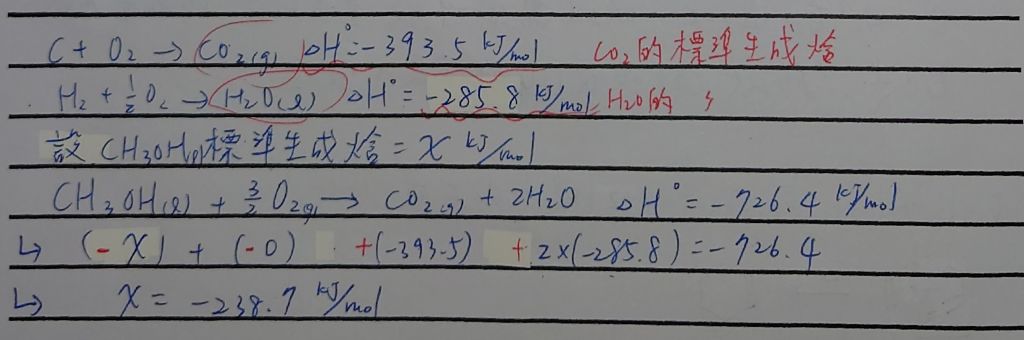 C + O₂ → CO₂(g) ΔH°=-393.5 kJ/mol CO₂的標準生成焓
H₂ + ½O₂ → H₂O(ℓ) ΔH°=-285.8 kJ/mol H₂O的 〃
設 CH₃OH(ℓ)標準生成焓 = X kJ/mol
CH₃OH(ℓ) + 3/2 O₂(g) → CO₂(g) + 2H₂O ΔH°=-726.4 kJ/mol
↳ (-X) + (-0) +(-393.5) + 2×(-285.8)=-726.4
↳ X = -238.7 kJ/mol